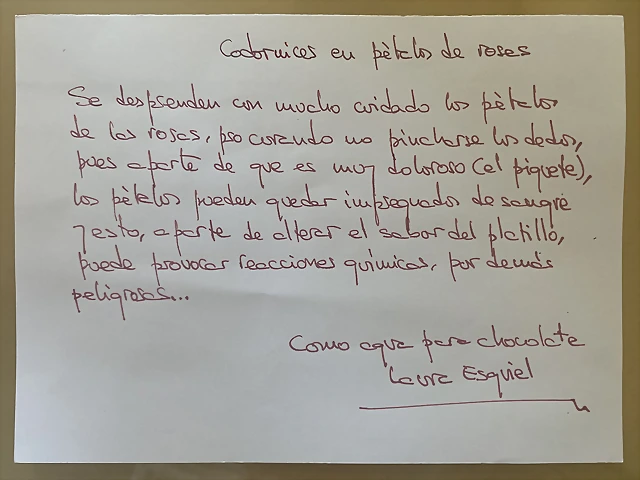 Codornices en pètalos de roses
Se desprenden con mucho cuidado los pètalos
de las rosas, procurando no pincharse los dedos,
pues aparte de que es muy doloroso (el piquete),
los pètalos pueden quedar impregnados de sangre
y esto, aparte de alterar el sabor del platillo,
puede provocar reacciones químicas, por demás
peligrosas...
Como agua para chocolate
Laura Esquiel